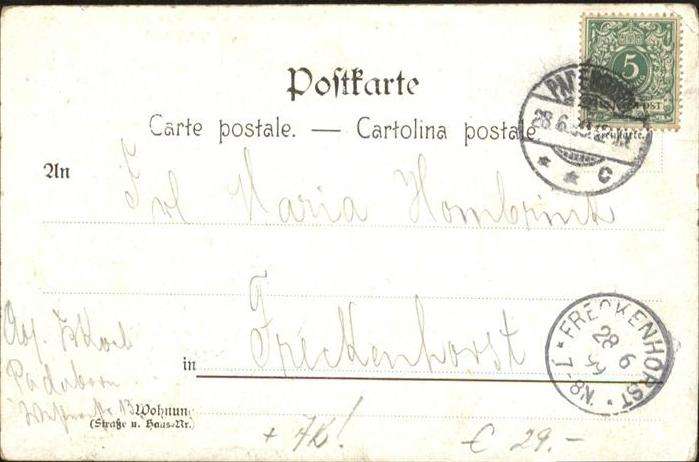 Postkarte
Carte postale. — Cartolina postale
5
28.6.99
* * C
An
Frl Maria Hombrink
in Freckenhorst
FRECKENHORST
28 6 99
N8-
Abs.
Paderborn
13
Wohnung
(Straße u. Haus-Nr.)
+ K!
€ 29.-